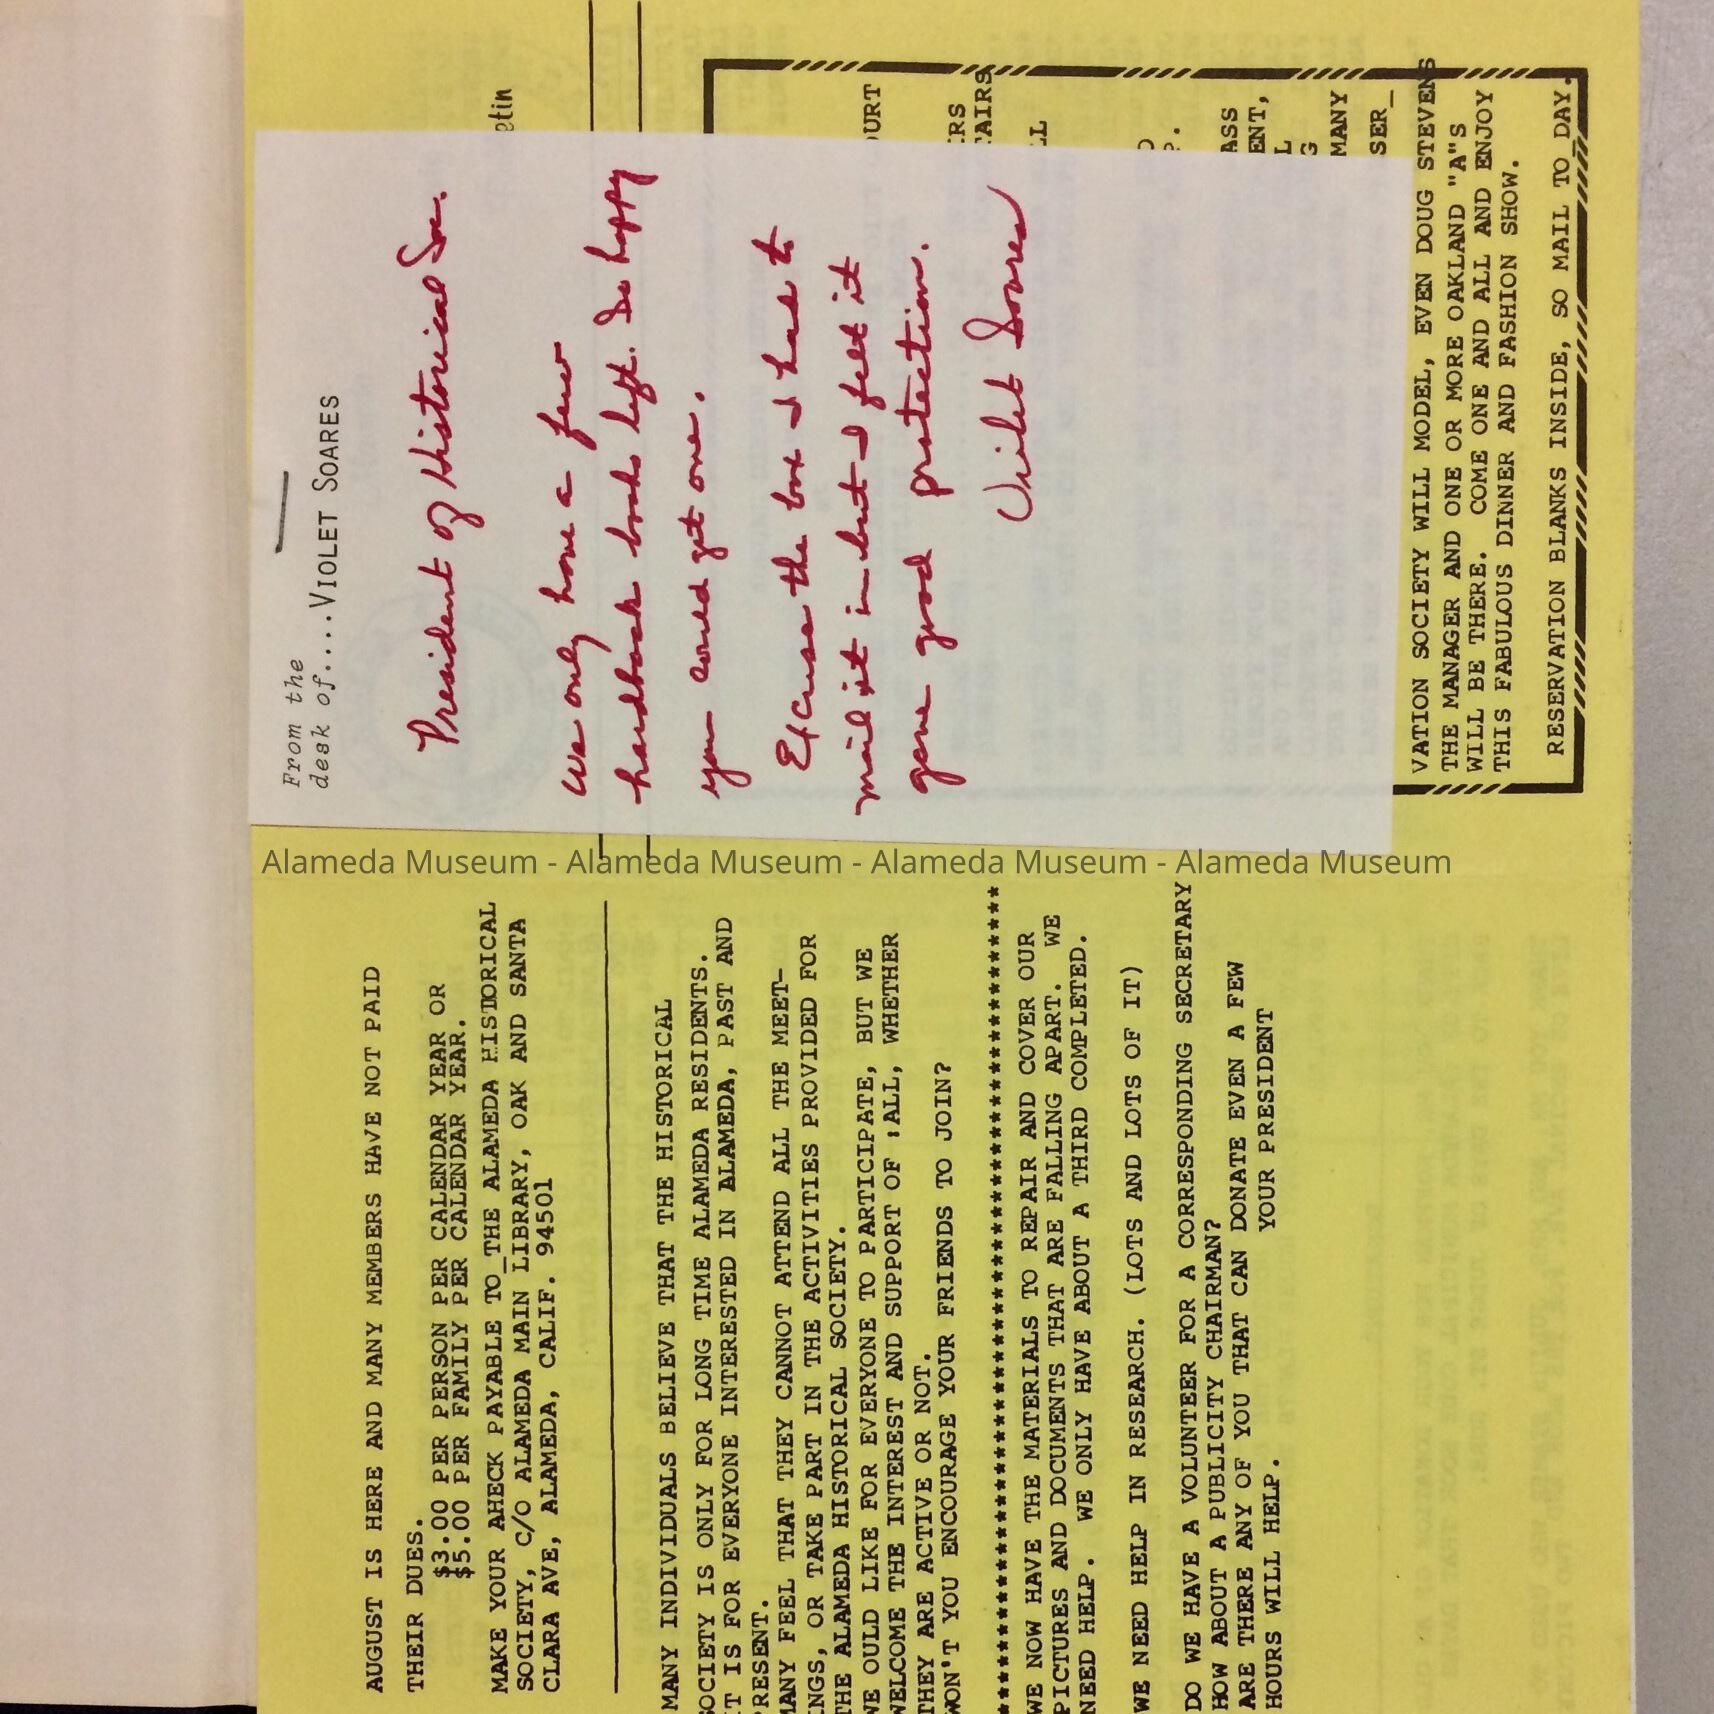 AUGUST IS HERE AND MANY MEMBERS HAVE NOT PAID
THEIR DUES.
$3.00 PER PERSON PER CALENDAR YEAR OR
$5.00 PER FAMILY PER CALENDAR YEAR.
MAKE YOUR AHECK PAYABLE TO_THE ALAMEDA HISTORICAL
SOCIETY, C/O ALAMEDA MAIN LIBRARY, OAK AND SANTA
CLARA AVE, ALAMEDA, CALIF. 94501
MANY INDIVIDUALS BELIEVE THAT THE HISTORICAL
SOCIETY IS ONLY FOR LONG TIME ALAMEDA RESIDENTS.
IT IS FOR EVERYONE INTERESTED IN ALAMEDA, PAST AND
PRESENT.
MANY FEEL THAT THEY CANNOT ATTEND ALL THE MEET-
INGS, OR TAKE PART IN THE ACTIVITIES PROVIDED FOR
THE ALAMEDA HISTORICAL SOCIETY.
WE OULD LIKE FOR EVERYONE TO PARTICIPATE, BUT WE
WELCOME THE INTEREST AND SUPPORT OF ;ALL, WHETHER
THEY ARE ACTIVE OR NOT.
WON'T YOU ENCOURAGE YOUR FRIENDS TO JOIN?
WE NOW HAVE THE MATERIALS TO REPAIR AND COVER OUR
PICTURES AND DOCUMENTS THAT ARE FALLING APART. WE
NEED HELP. WE ONLY HAVE ABOUT A THIRD COMPLETED.
WE NEED HELP IN RESEARCH. (LOTS AND LOTS OF IT)
DO WE HAVE A VOLUNTEER FOR A CORRESPONDING SECRETARY
HOW ABOUT A PUBLICITY CHAIRMAN?
ARE THERE ANY OF YOU THAT CAN DONATE EVEN A FEW
HOURS WILL HELP. YOUR PRESIDENT
From the
desk of....VIOLET SOARES
President of Historical Soc.
We only have a few
hardback books left. So happy
you could get one.
Excuse the box I had to
mail it in but I felt it
gave good protection.
Violet Soares
etin
OURT
IRS
TAIRS
LL
ASS
ENT,
MANY
SER_
VATION SOCIETY WILL MODEL, EVEN DOUG STEVENS
THE MANAGER AND ONE OR MORE OAKLAND "A"S
WILL BE THERE. COME ONE AND ALL AND ENJOY
THIS FABULOUS DINNER AND FASHION SHOW.
RESERVATION BLANKS INSIDE, SO MAIL TO_DAY.
Alameda Museum - Alameda Museum - Alameda Museum - Alameda Museum